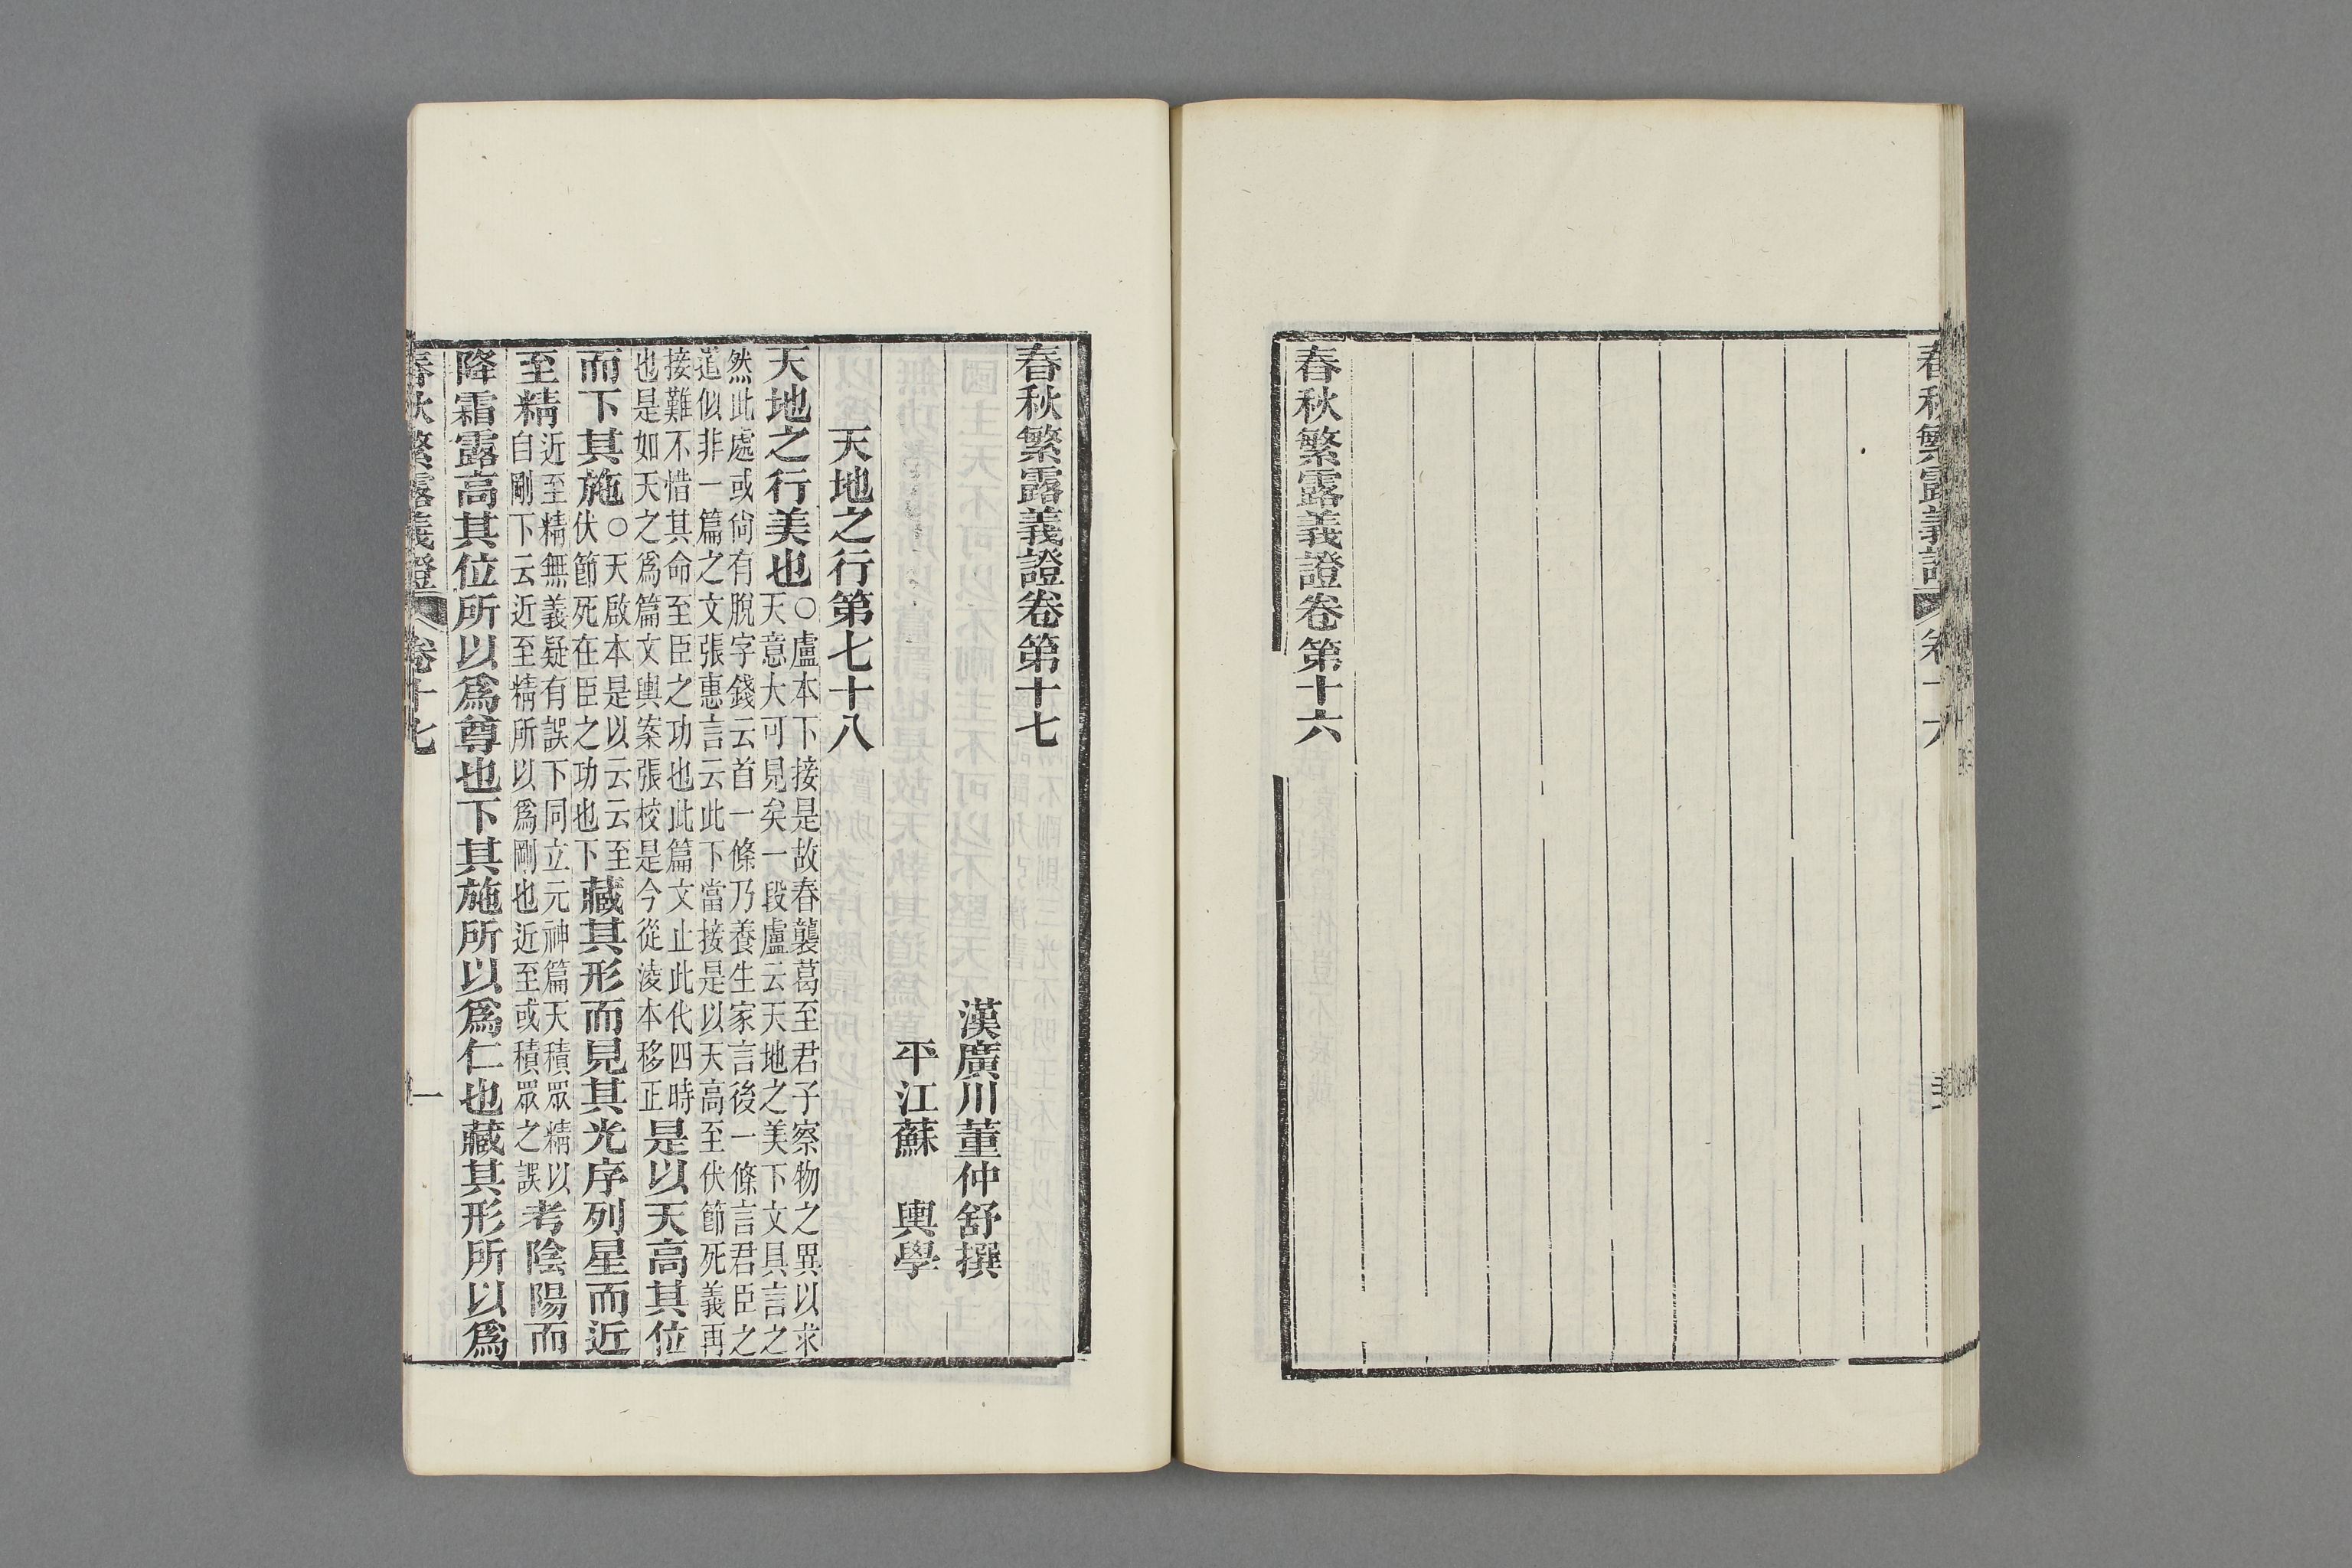 春秋繁露義證卷第十六
春秋繁露義證卷第十七
漢廣川董仲舒撰
平江蘇 輿學
天地之行第七十八
天地之行美也○盧本下接是故春襲葛至君子察物之異以求
天意大可見矣一段盧云天地之美下文具言之
然此處或尙有脫字錢云首一條乃養生家言後一條言君臣之
道似非一篇之文張惠言云此下當接是以天高至伏節死義再
接難不惜其命至臣之功也此篇文止此代四時
也是如天之爲篇文輿案張校是今從淩本移正是以天高其位
而下其施○天啟本是以云云至
伏節死在臣之功也下藏其形而見其光序列星而近
至精近至精無義疑有誤下同立元神篇天積眾精以
自剛下云近至精所以爲剛也近至或積眾之誤考陰陽而
降霜露高其位所以爲尊也下其施所以爲仁也藏其形所以爲
春秋繁露義證 卷十七 一